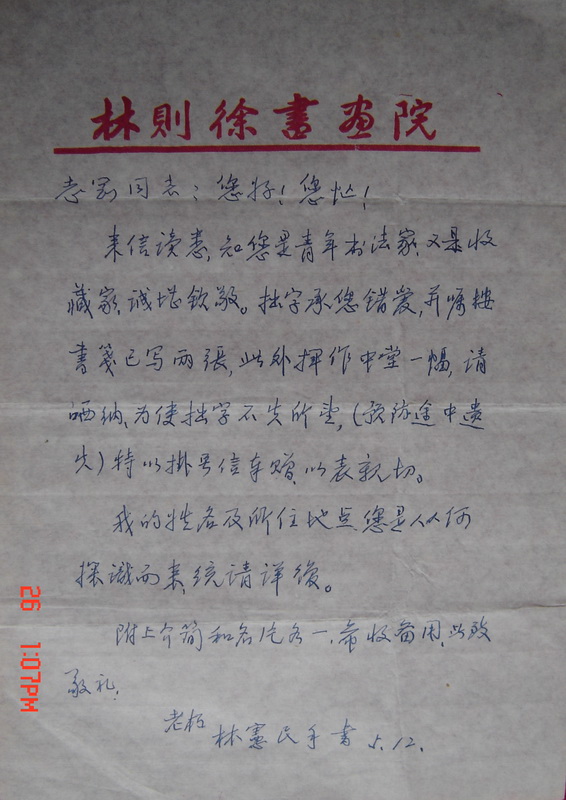 林則徐書畫院
志罡同志：您好！您忙！
来信读悉，知您是青年书法家，又是收
藏家，诚堪钦敬。拙字承您错爱，并嘱接
書笺已写两張，此外揮作中堂一幅，请
哂纳，为使拙字不失所望，（预防途中遗
失）特以掛号信奉赠，以表親切。
我的姓名及所住地点，您是从何
探识而来，统请详複。
附上介简和名片各一，希收备用，此致
敬礼！
老朽
林憲民手書 5.12.
26 1:07PM